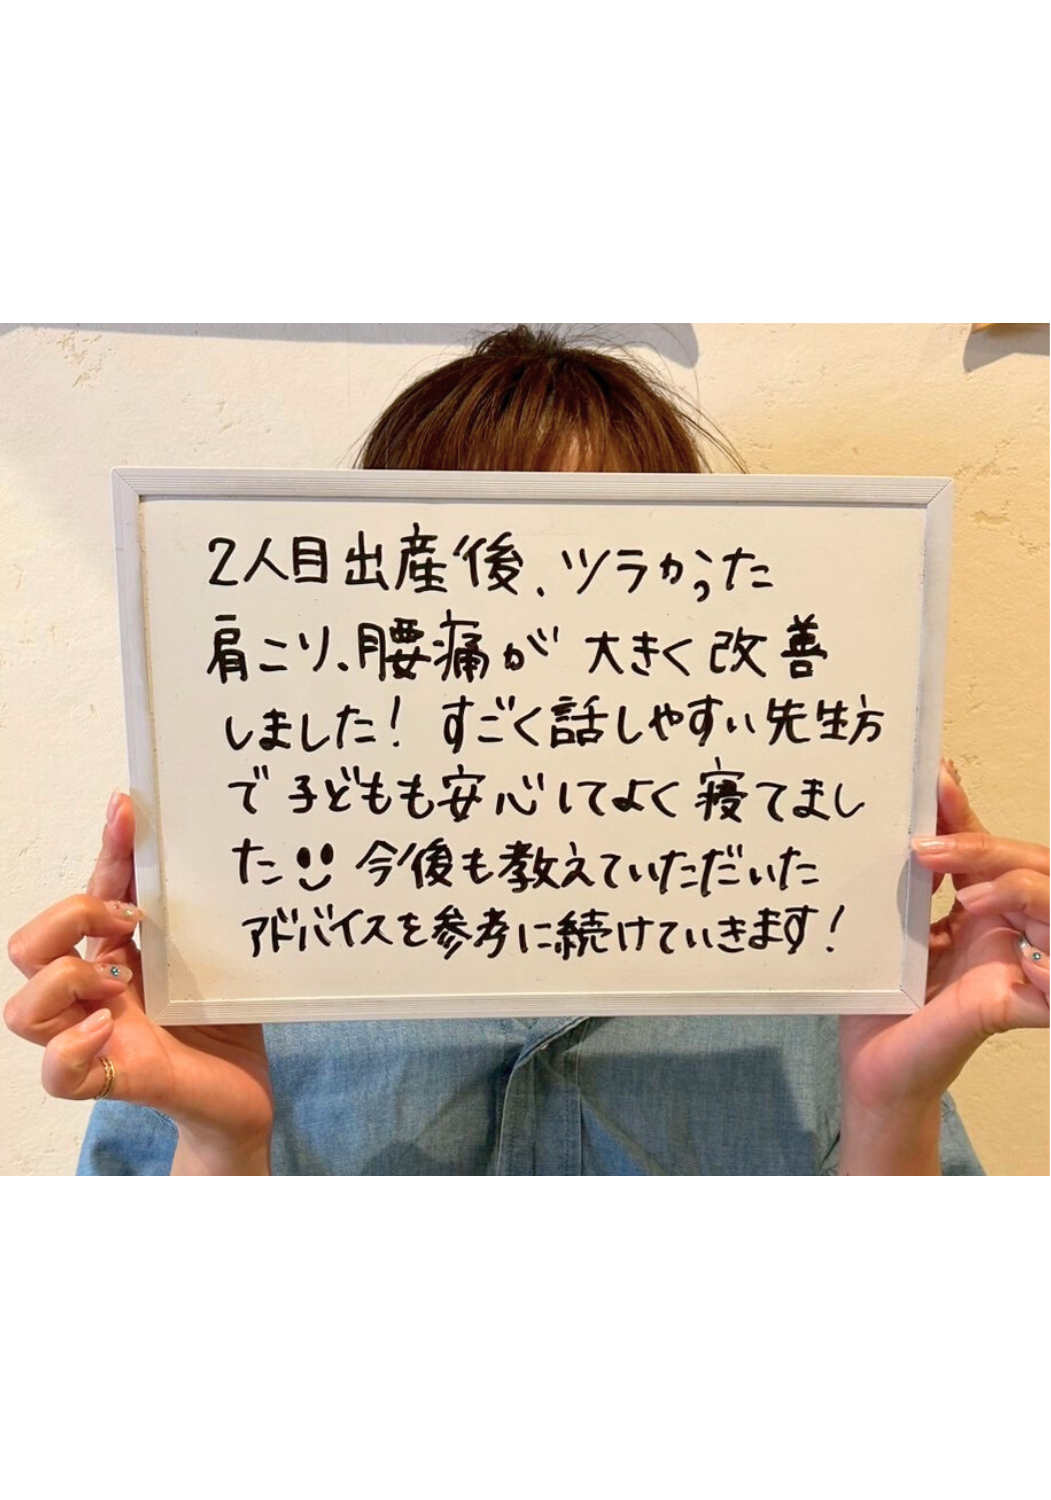 2人目出産後、ツラかった
肩こり、腰痛が 大きく改善
しました! すごく話しやすい先生方
で子どもも安心してよく寝てまし
た 今後も教えていただいた
アドバイスを参考に続けていきます!